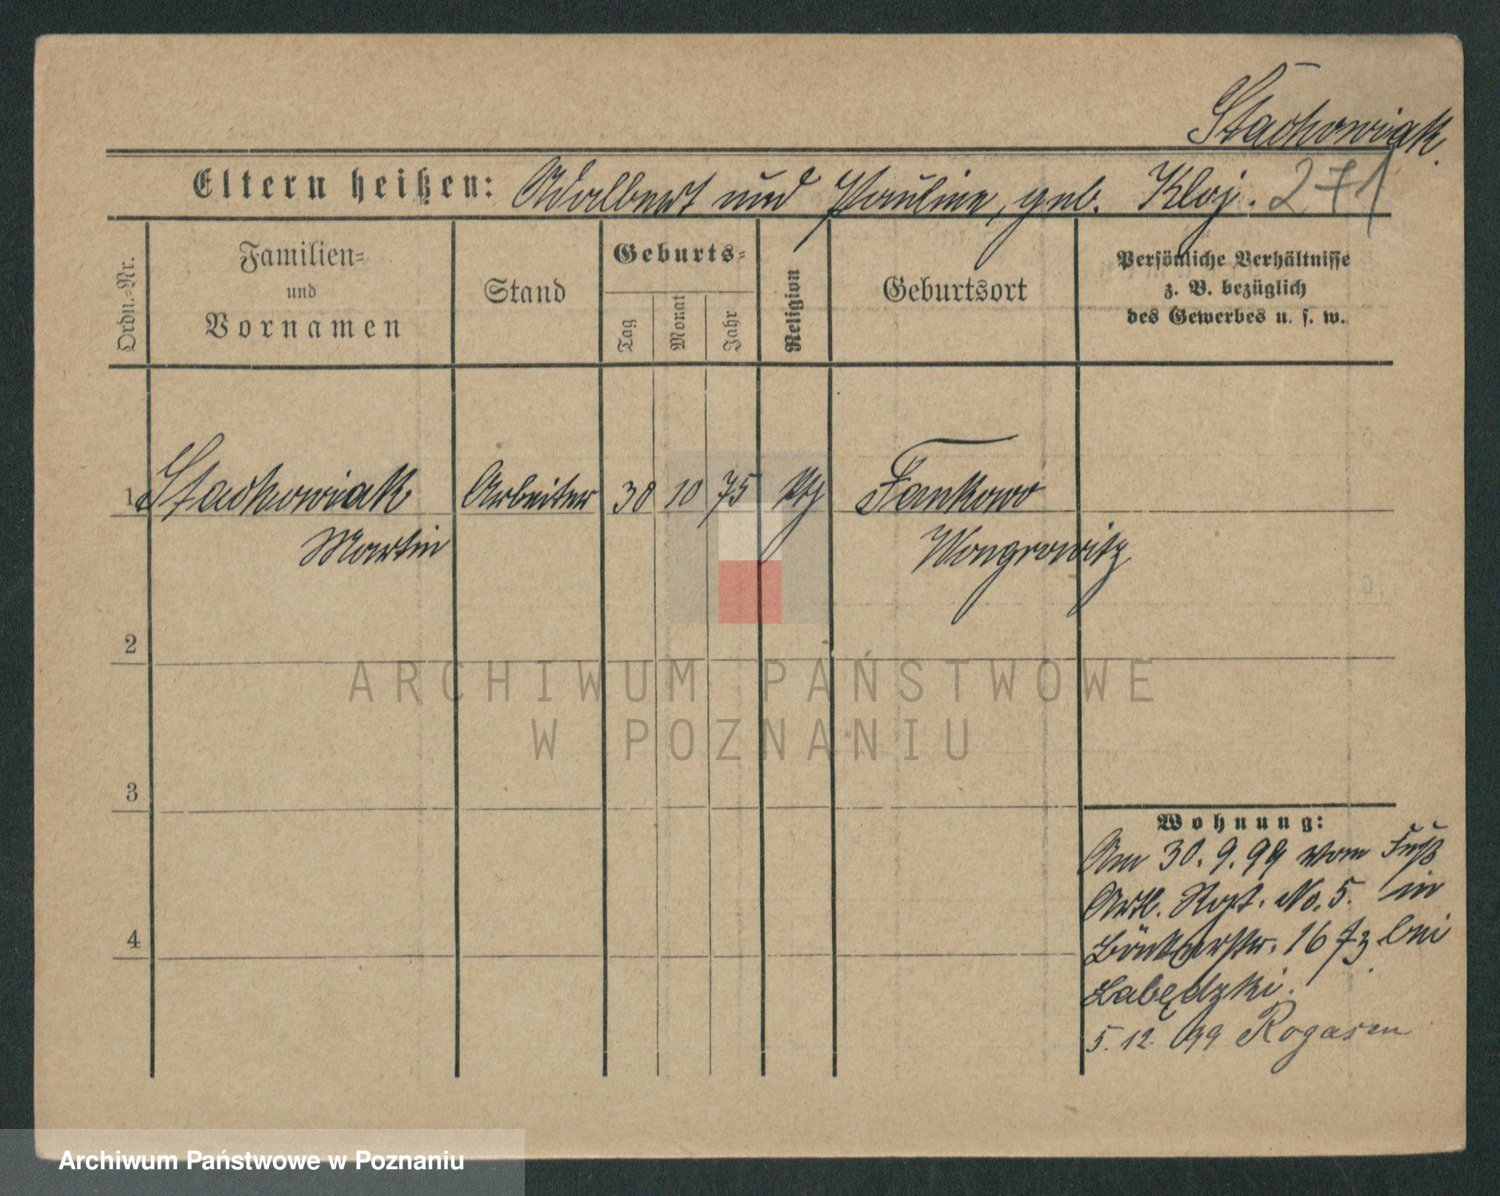 Stachowiak.
Eltern heißen: Adalbert und Pauline, geb. Kloj. 271
Ordn.-Nr.
Familien-
und
Vornamen
Stand
Geburts-
Tag
Monat
Jahr
Religion
Geburtsort
Persönliche Verhältnisse
z. B. bezüglich
des Gewerbes u. s. w.
1 Stachowiak Arbeiter 30 10 75
Martin Wongrowitz
2
ARCHIWUM PAŃSTWOWE
W POZNANIU
3
Wohnung:
Am 30.9.99 vom Fuß
Artl. Rgt. No. 5. in
16 bei
Łabędzki.
4
5.12.99 Rogasen
Archiwum Państwowe w Poznaniu